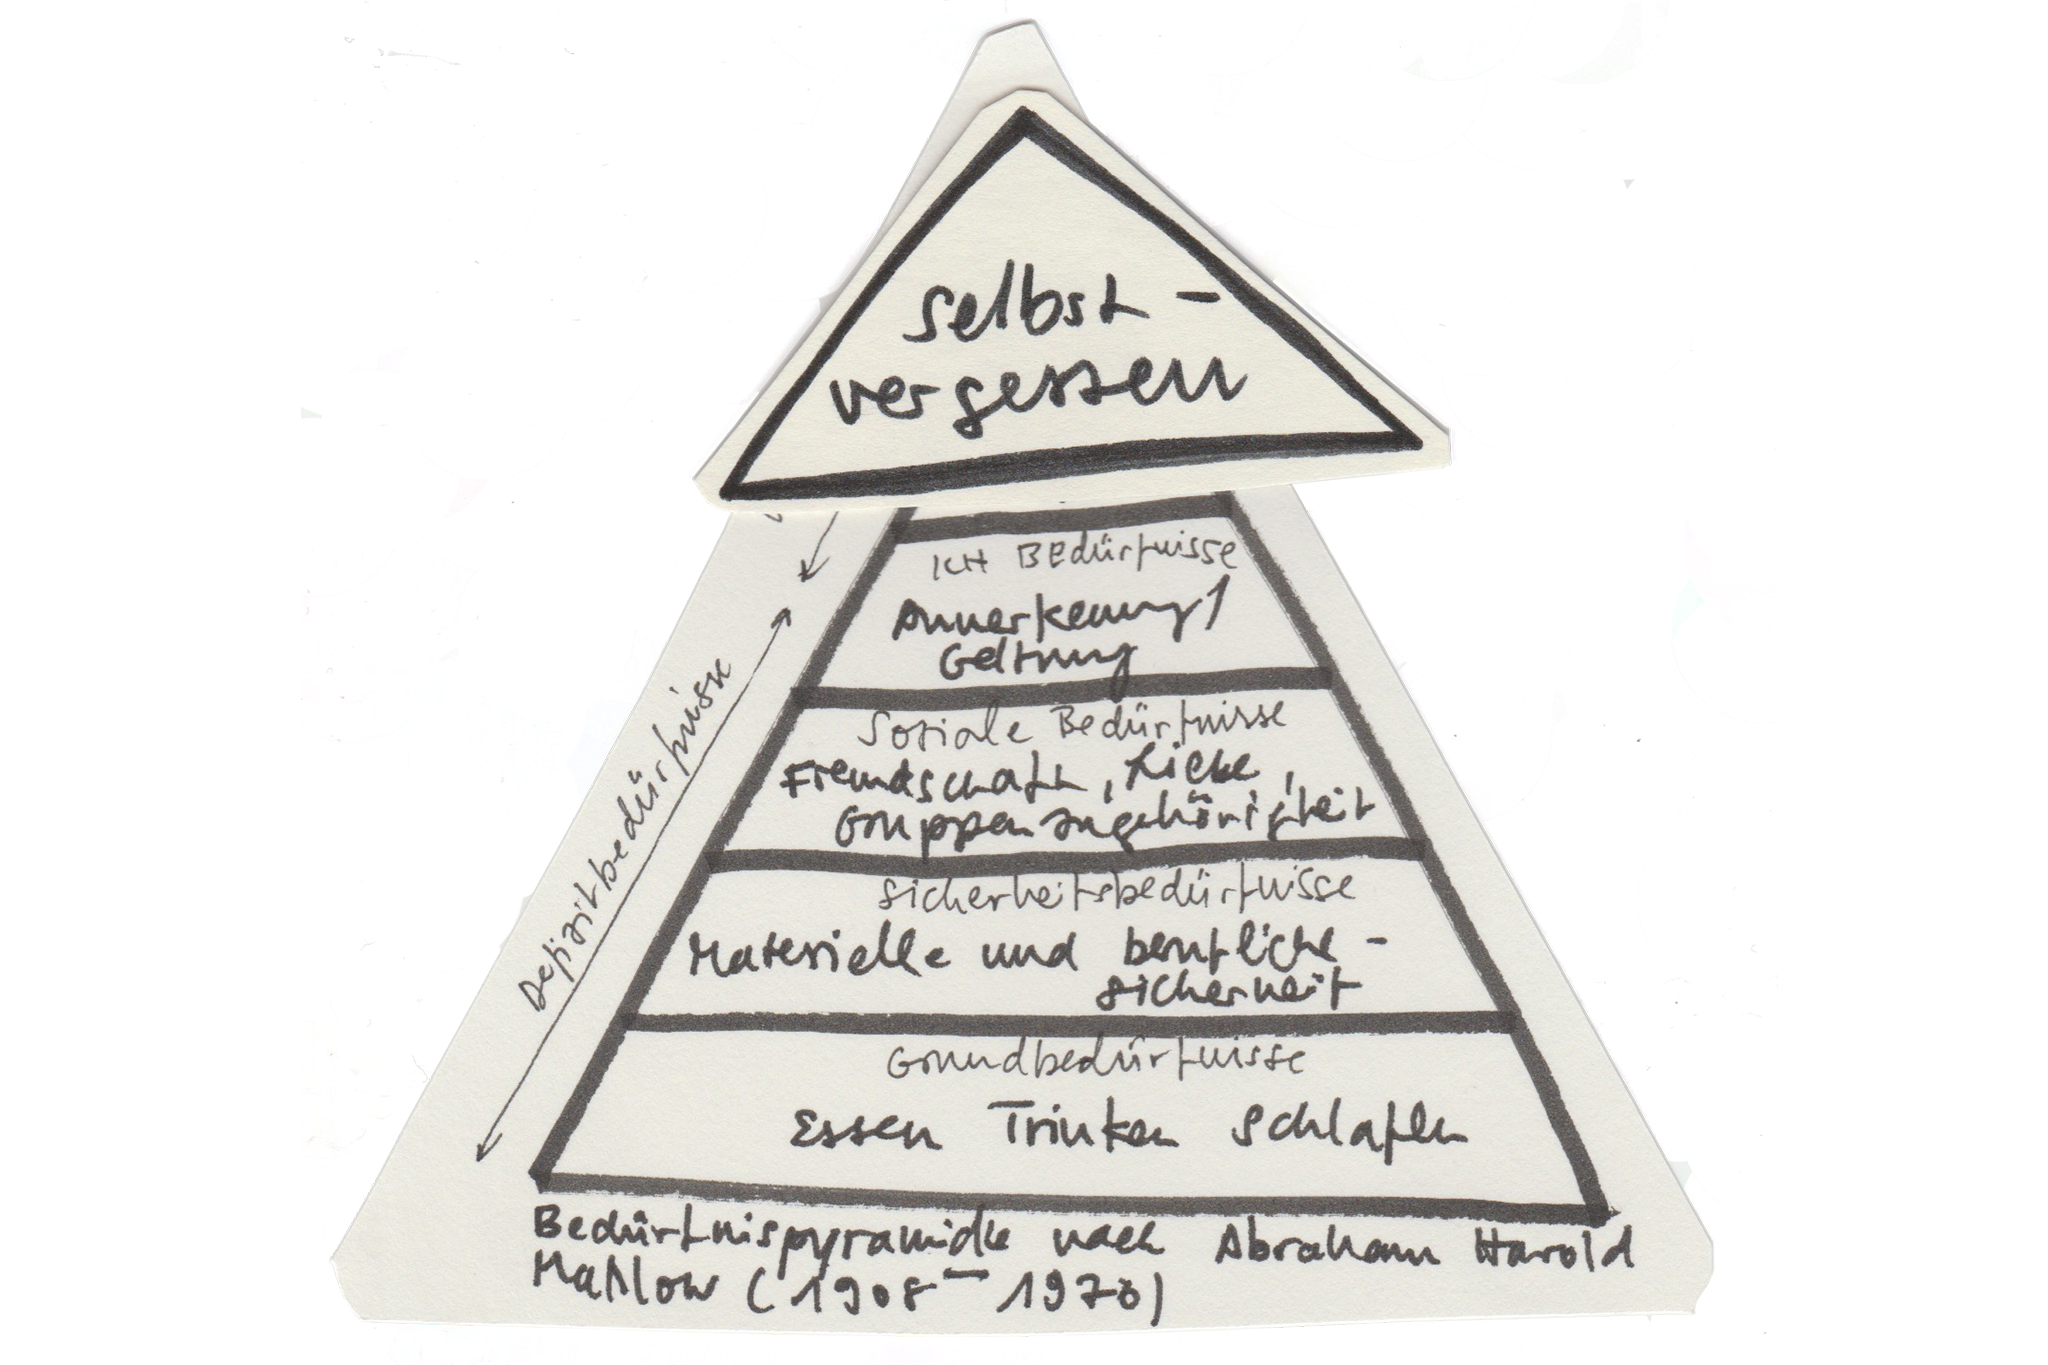 selbst-
vergessen
ICH BEdürfnisse
Annerkennung/
Geltung
Soziale Bedürfnisse
Freundschaft, Liebe,
Gruppenzugehörigkeit
Sicherheitsbedürfnisse
Materielle und berufliche-
sicherheit
Grundbedürfnisse
Essen Trinken Schlafen
Defizitbedürfnisse
Bedürfnispyramide nach Abraham Harold
Maslow (1908-1970)